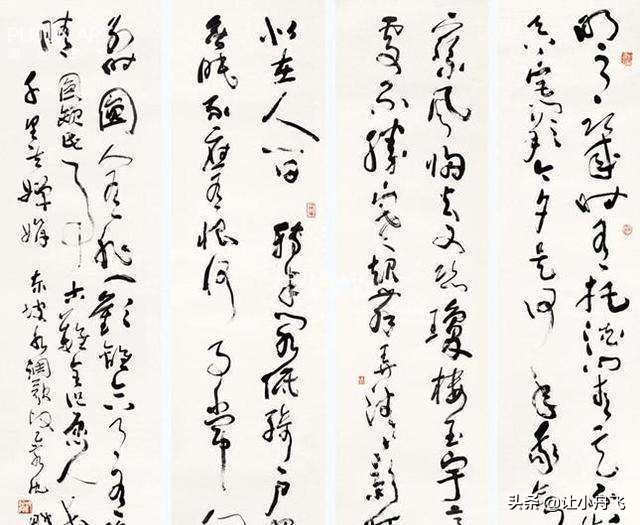 明月几时有把酒问青天
宫阙今夕是何年我欲
风归去又恐琼楼玉宇
处不胜寒起舞弄清影
似在人间 转朱阁低绮户
无眠不应有恨何事长向
别时圆人有悲欢离合月有
晴圆缺此事古难全但愿人长
千里共婵娟 东坡水调歌头
头条 @让小丹飞